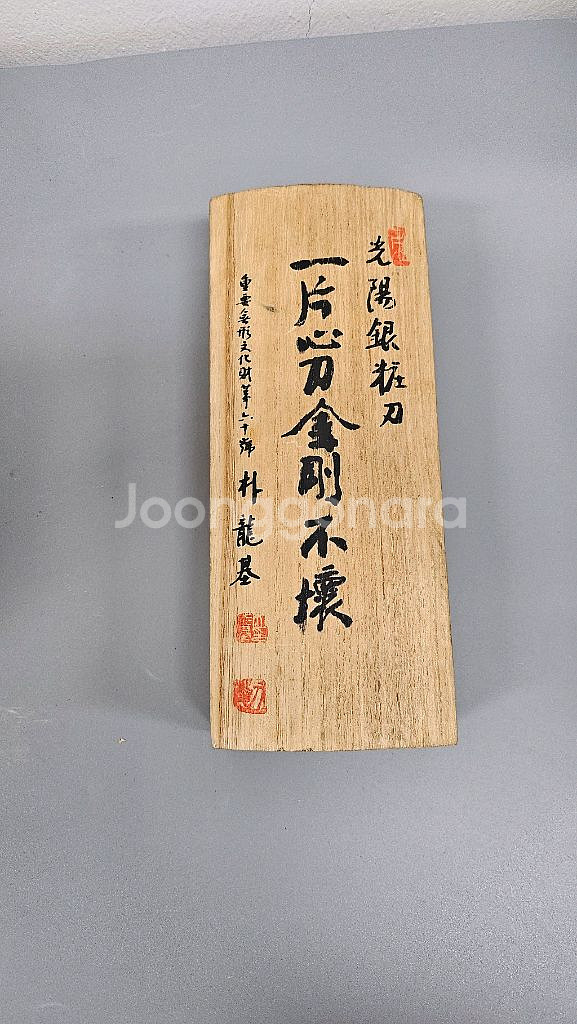 光陽銀粧刀
一片心刀金剛不壞
重要無形文化財第六十號
朴龍基
Joonggonara